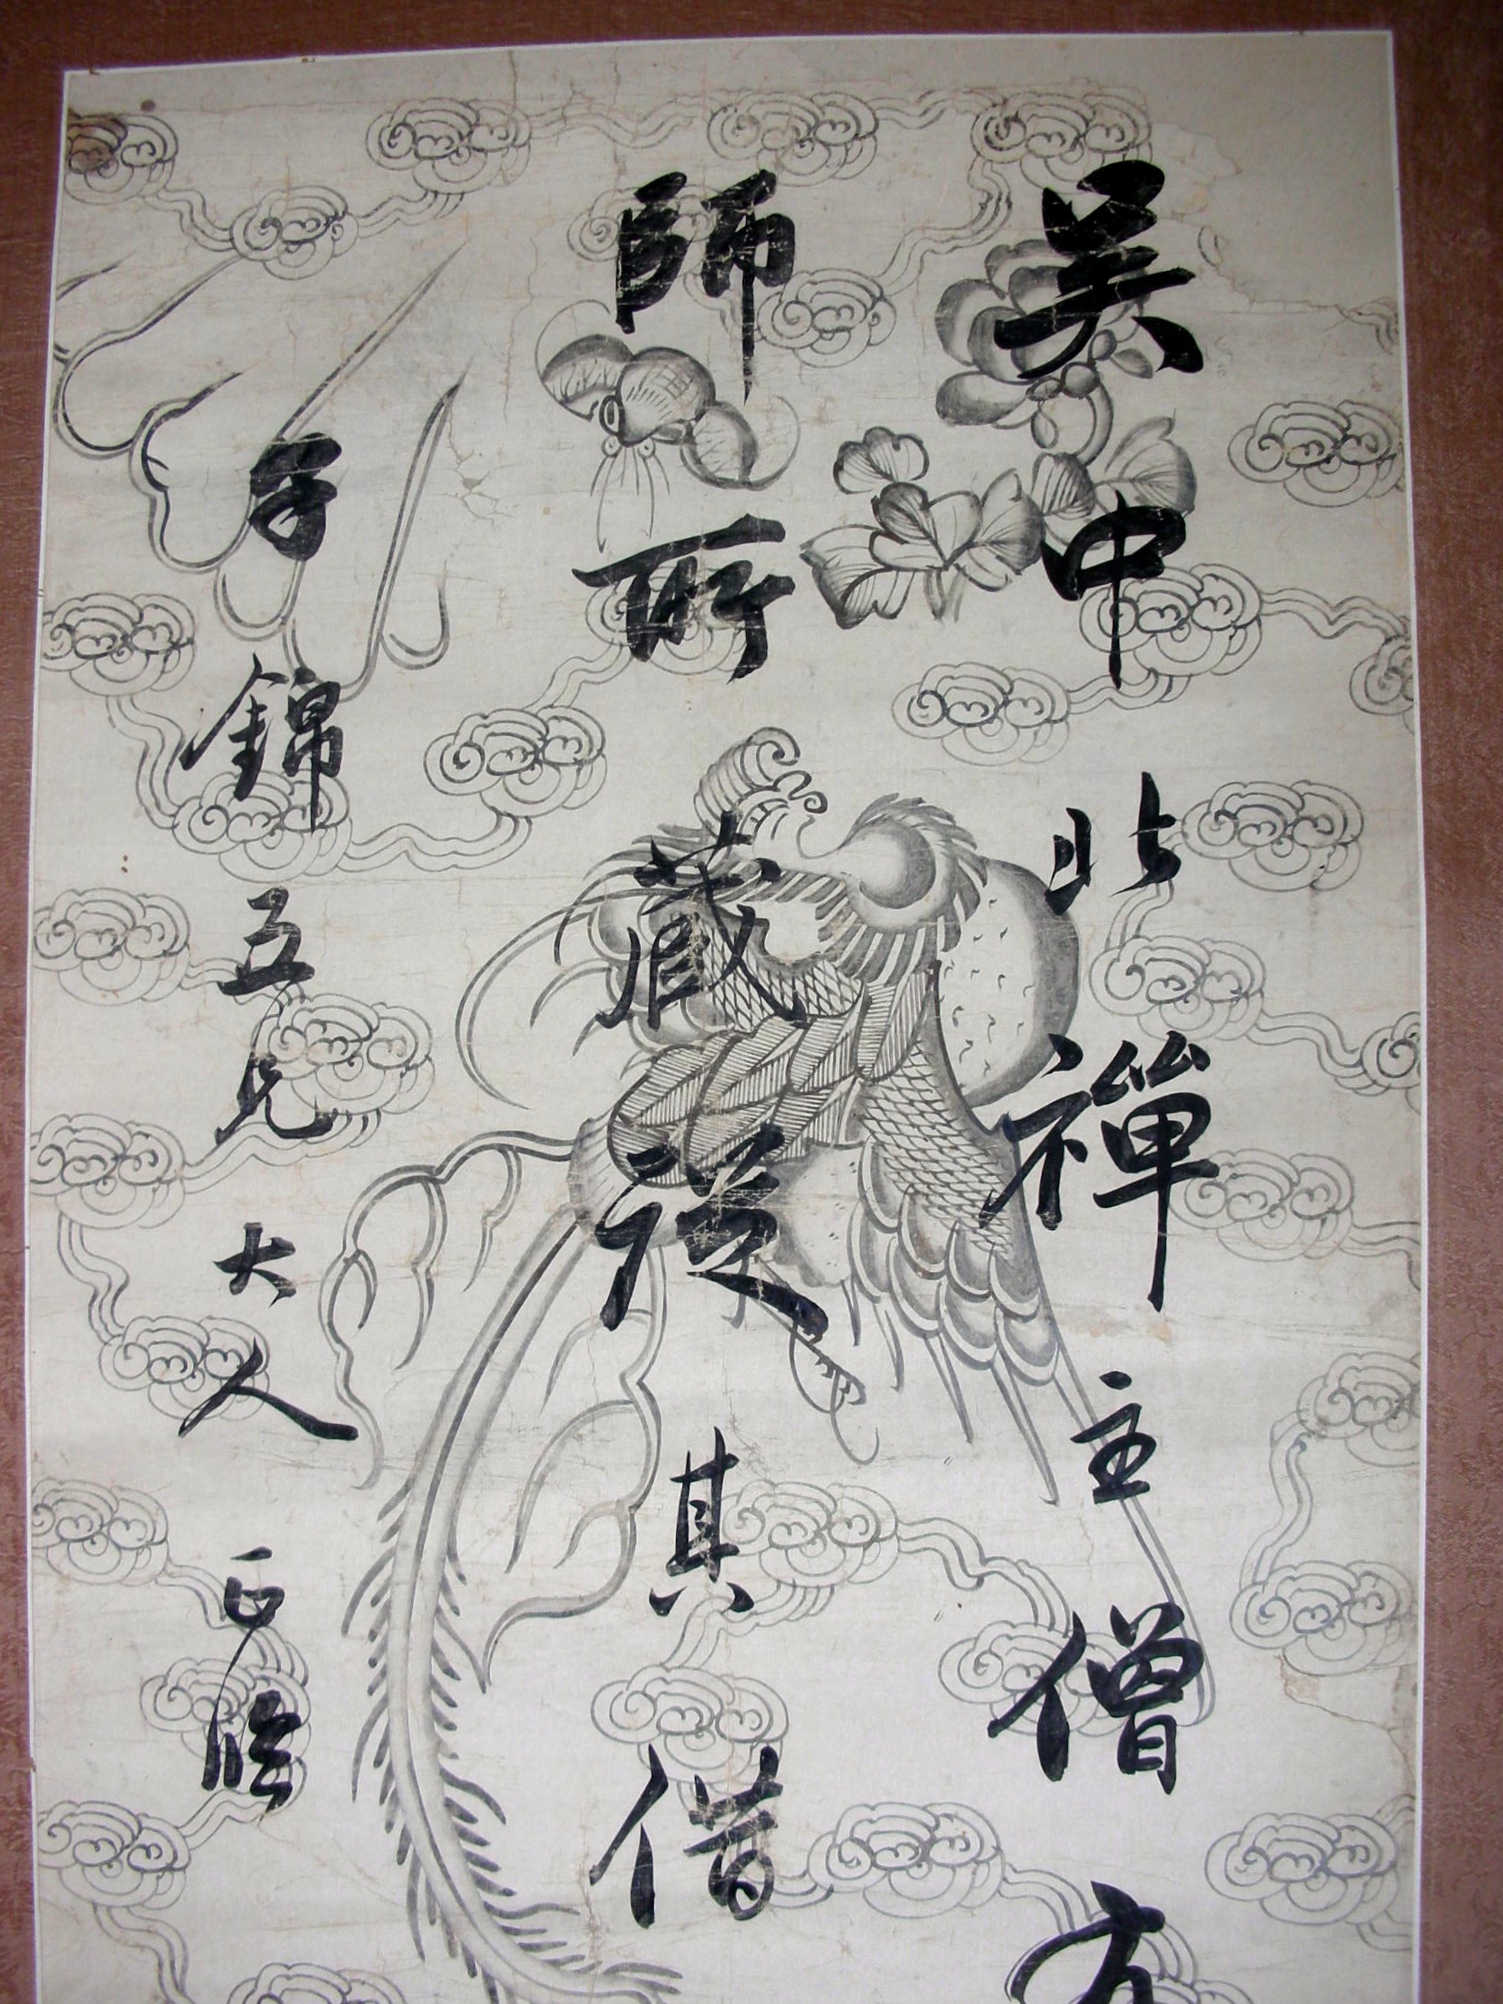 吴中北禪主僧方
師所藏從其借
子錦五兄大人正臨